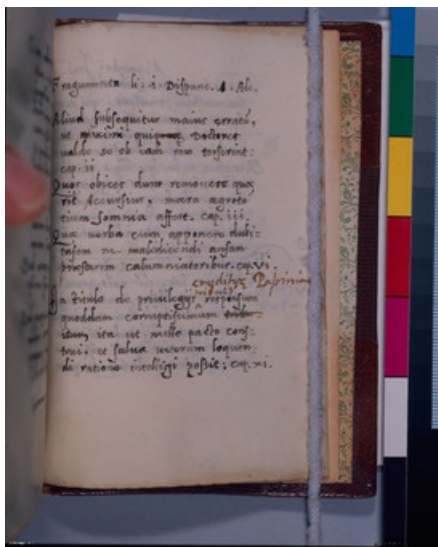 Fragmenta li: i. Dispunc. A. Alc.
Aliud subsequitur maius erratu,
ut maximi Doctores
valde se ob eam rem torserint:
cap. ii.
Quos obices dum removere quæ
rit Accursius, mera ægroto
tium somnia affert. cap. iii.
Qua verba cum apponere dubi:
tassem ne maledicendi ansam
præstarem calumniatoribus. cap. vi.
In titulo de privilegijs responsum
quoddam corruptissimum
ita ut nullo pacto cons:
trui, et salva verum loquen:
di ratione intelligi possit: cap. xi.